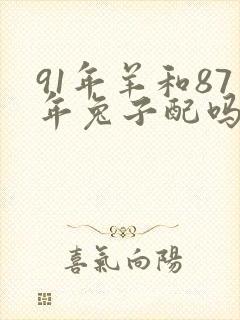 91年羊和87
年兔子配吗
喜氣向陽